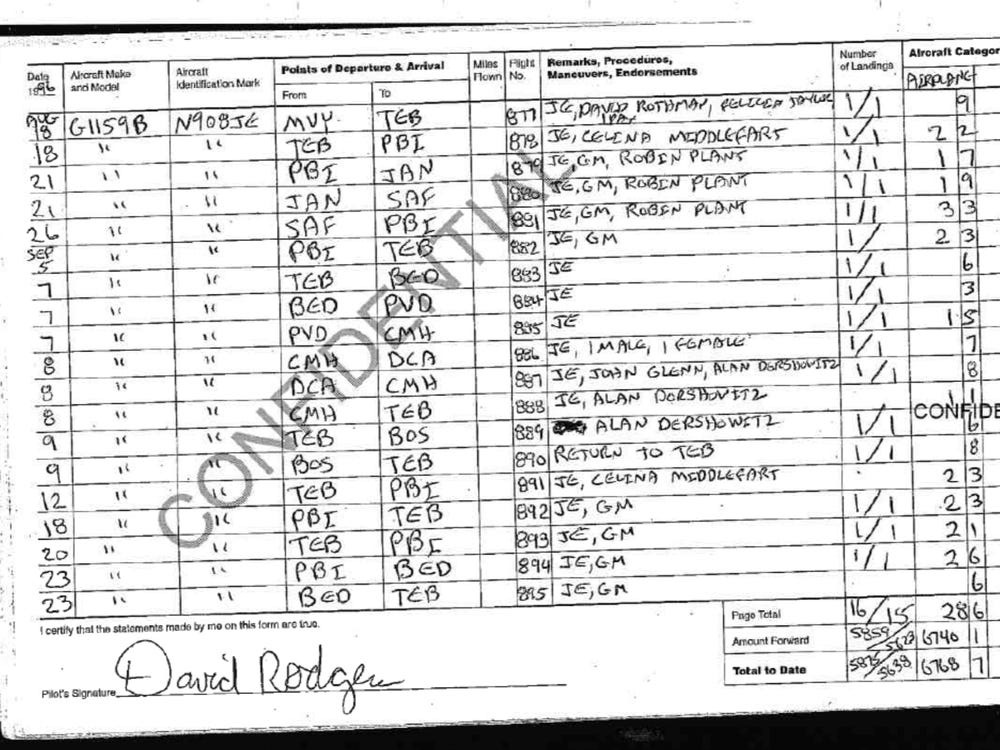 Date 1996 Aircraft Make and Model Aircraft Identification Mark Points of Departure & Arrival From To Miles Flown Flight No. Remarks, Procedures, Maneuvers, Endorsements Number of Landings Aircraft Categor
AIRPLANE
AUG 18 G1159B N908JE MVY TEB 877 JE, DAVID ROTHMAN, 1 PAX 1/1 9
18 " " TEB PBI 878 JE, CELINA MIDDLEFART 1/1 2 2
21 " " PBI JAN 879 JE, GM, ROBIN PLANT 1/1 1 7
21 " " JAN SAF 880 JE, GM, ROBIN PLANT 1/1 1 9
26 " " SAF PBI 881 JE, GM, ROBIN PLANT 1/1 3 3
SEP 5 " " PBI TEB 882 JE, GM 1/1 2 3
7 " " TEB BED 883 JE 1/1 6
7 " " BED PVD 884 JE 1/1 3
7 " " PVD CMH 885 JE 1/1 1 5
8 " " CMH DCA 886 JE, 1 MALE, 1 FEMALE 1/1 7
8 " " DCA CMH 887 JE, JOHN GLENN, ALAN DERSHOWITZ 1/1 8
8 " " CMH TEB 888 JE, ALAN DERSHOWITZ
9 " " TEB BOS 889 ALAN DERSHOWITZ 1/1 6
9 " " BOS TEB 890 RETURN TO TEB 1/1 8
12 " " TEB PBI 891 JE, CELINA MIDDLEFART 2 3
18 " " PBI TEB 892 JE, GM 1/1 2 3
20 " " TEB PBI 893 JE, GM 1/1 2 1
23 " " PBI BED 894 JE, GM 1/1 2 6
23 " " BED TEB 895 JE, GM 6
CONFIDENTIAL
CONFIDE
I certify that the statements made by me on this form are true.
Page Total 16/15 28 6
Amount Forward 5859/5623 6740 1
Total to Date 5875/5638 6768 7
Pilot's Signature David Rodgers